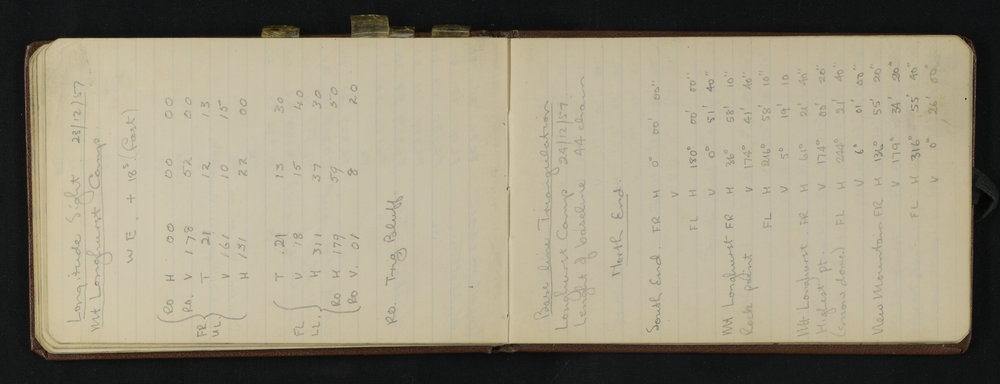 Longitude Sight 23/12/57
Mt Longhurst Camp.
W E. + 18s (fast)
RO H .00 00 00
RO. V 178 52 00
FR T 21 12 13
UL V 161 10 15
H 131 22 00
T .21 13 30
FL V 18 15 40
LL. H 311 37 30
RO H 179 59 50
RO V. 01 8 20
RO. Tring Bluff
Base line Triangulation
Longhurst Camp 24/12/57.
Length of baseline 44 chain
North End.
South End. FR H 0° 00' 00"
V
FL H 180° 00' 00"
V 0° 51' 40"
Mt Longhurst FR H 36° 58' 10"
Rock point V 174° 41' 40"
FL H 216° 58' 10"
V 5° 19' 10
Mt Longhurst FR H 61° 21' 40"
Highest Pt. V 174° 03' 20"
(snow dome) FL H 244° 21' 40"
V 6° 01' 00"
New Mountain FR H 136° 55' 20"
V 179° 34' 20"
FL H 316° 55' 40"
V 0° 26' 00